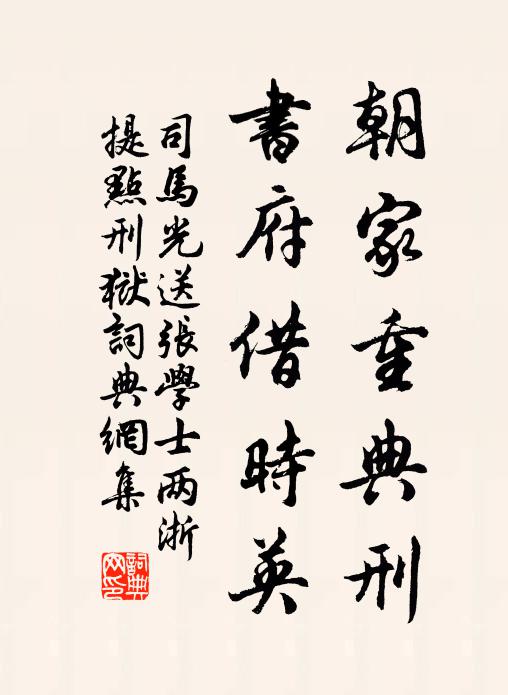 朝家重典刑
書府借時英
司馬光送張學士兩浙
提點刑獄詞典網集
詞典網印